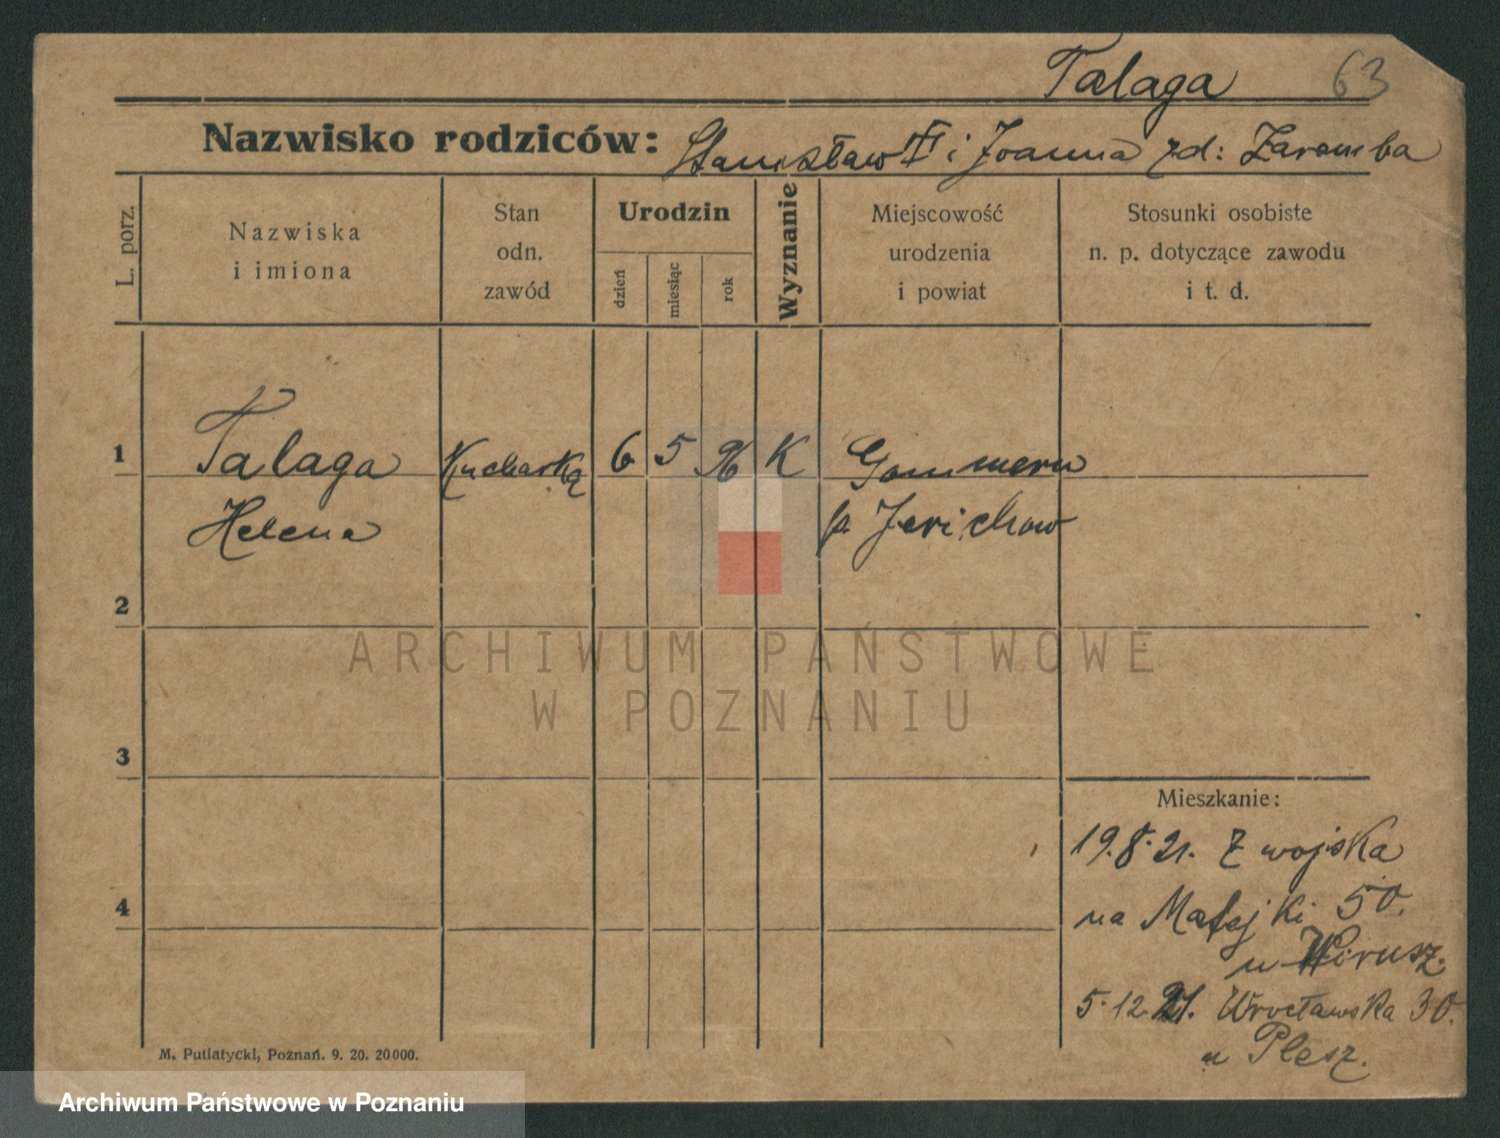 Talaga 63
Nazwisko rodziców: Stanisław i Joanna zd: Zaremba
L. porz.
Nazwiska
i imiona
Stan
odn.
zawód
Urodzin
dzień
miesiąc
rok
Wyznanie
Miejscowość
urodzenia
i powiat
Stosunki osobiste
n. p. dotyczące zawodu
i t. d.
1 Talaga Kucharka 6 5 96 K Gommern
Helena p. Jerichow
2
ARCHIWUM PAŃSTWOWE
W POZNANIU
3
Mieszkanie:
19.8.21. Z wojska
4
na Matejki 50.
u Wirusz.
5.12.21. Wrocławska 30.
u Plesz.
M. Putiatycki, Poznań. 9. 20. 20000.
Archiwum Państwowe w Poznaniu